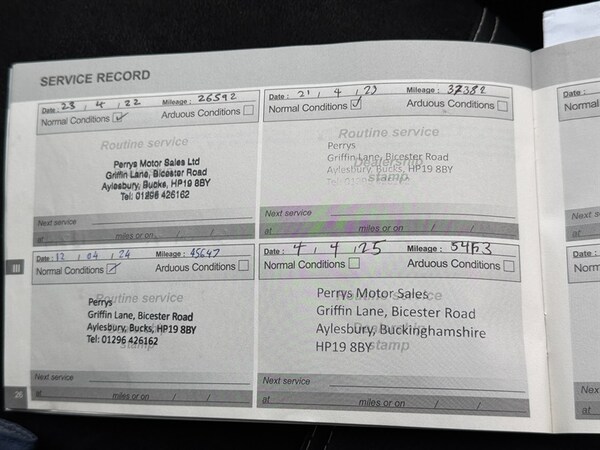 SERVICE RECORD
Date : 23 , 4 , 22 Mileage : 26592
Normal Conditions Arduous Conditions
Routine service
Perrys Motor Sales Ltd
Griffin Lane, Bicester Road
Aylesbury, Bucks, HP19 8BY
Tel: 01296 426162
Next service
at miles or on / /
Date : 21 , 4 , 23 Mileage : 37382
Normal Conditions Arduous Conditions
Routine service
Perrys
Griffin Lane, Bicester Road
Dealership
Aylesbury, Bucks, HP19 8BY
stamp
Next service
at miles or on / /
Date : 12 , 04 , 24 Mileage : 45647
Normal Conditions Arduous Conditions
Routine service
Perrys
Griffin Lane, Bicester Road
Aylesbury, Bucks, HP19 8BY
Tel: 01296 426162
stamp
Next service
at miles or on / /
Date : 4 , 4 , 25 Mileage :
Normal Conditions Arduous Conditions
Routine service
Perrys Motor Sales
Griffin Lane, Bicester Road
Dealership
Aylesbury, Buckinghamshire
HP19 8BY
stamp
Next service
at miles or on / /
26
Date :
Normal
Next s
at
Date :
Normal
Nex
at